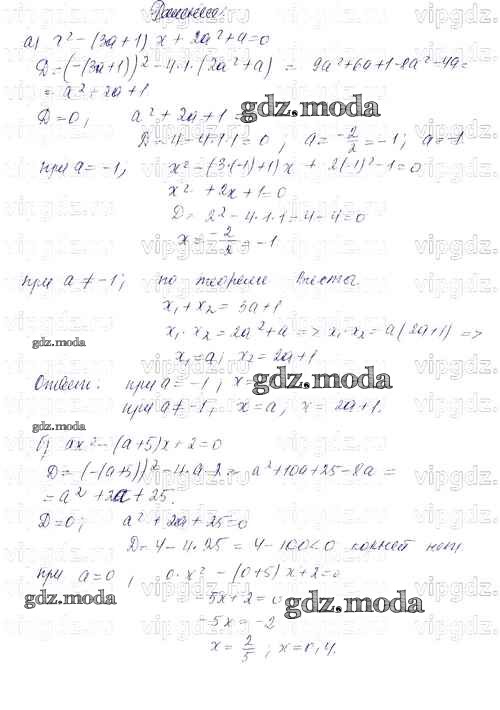 Решение:
а) x² - (3a+1)x + 2a² + a = 0
D = (-(3a+1))² - 4·1·(2a²+a) = 9a²+6a+1-8a²-4a =
= a² + 2a + 1
D = 0; a² + 2a + 1 =
D = 4 - 4·1·1 = 0; a = -2/2 = -1; a = -1
при a = -1; x² - (3·(-1)+1)x + 2(-1)² - 1 = 0
x² + 2x + 1 = 0
D = 2² - 4·1·1 = 4 - 4 = 0
x = -2/2 = -1
при a ≠ -1; по теореме Виета.
x₁ + x₂ = 3a+1
x₁·x₂ = 2a²+a => x₁·x₂ = a(2a+1) =>
x₁ = a; x₂ = 2a+1
Ответ: при a = -1; x =
при a ≠ -1; x = a; x = 2a+1.
б) ax² - (a+5)x + 2 = 0
D = (-(a+5))² - 4·a·2 = a²+10a+25-8a =
= a² + 2a + 25.
D = 0; a² + 2a + 25 = 0
D = 4 - 4·25 = 4 - 100 < 0 корней нет
при a = 0, 0·x² - (0+5)x + 2 = 0
-5x + 2 = 0
-5x = -2
x = 2/5; x = 0,4.
gdz.moda
gdz.moda
gdz.moda
gdz.moda
gdz.moda
gdz.moda
vipgdz.